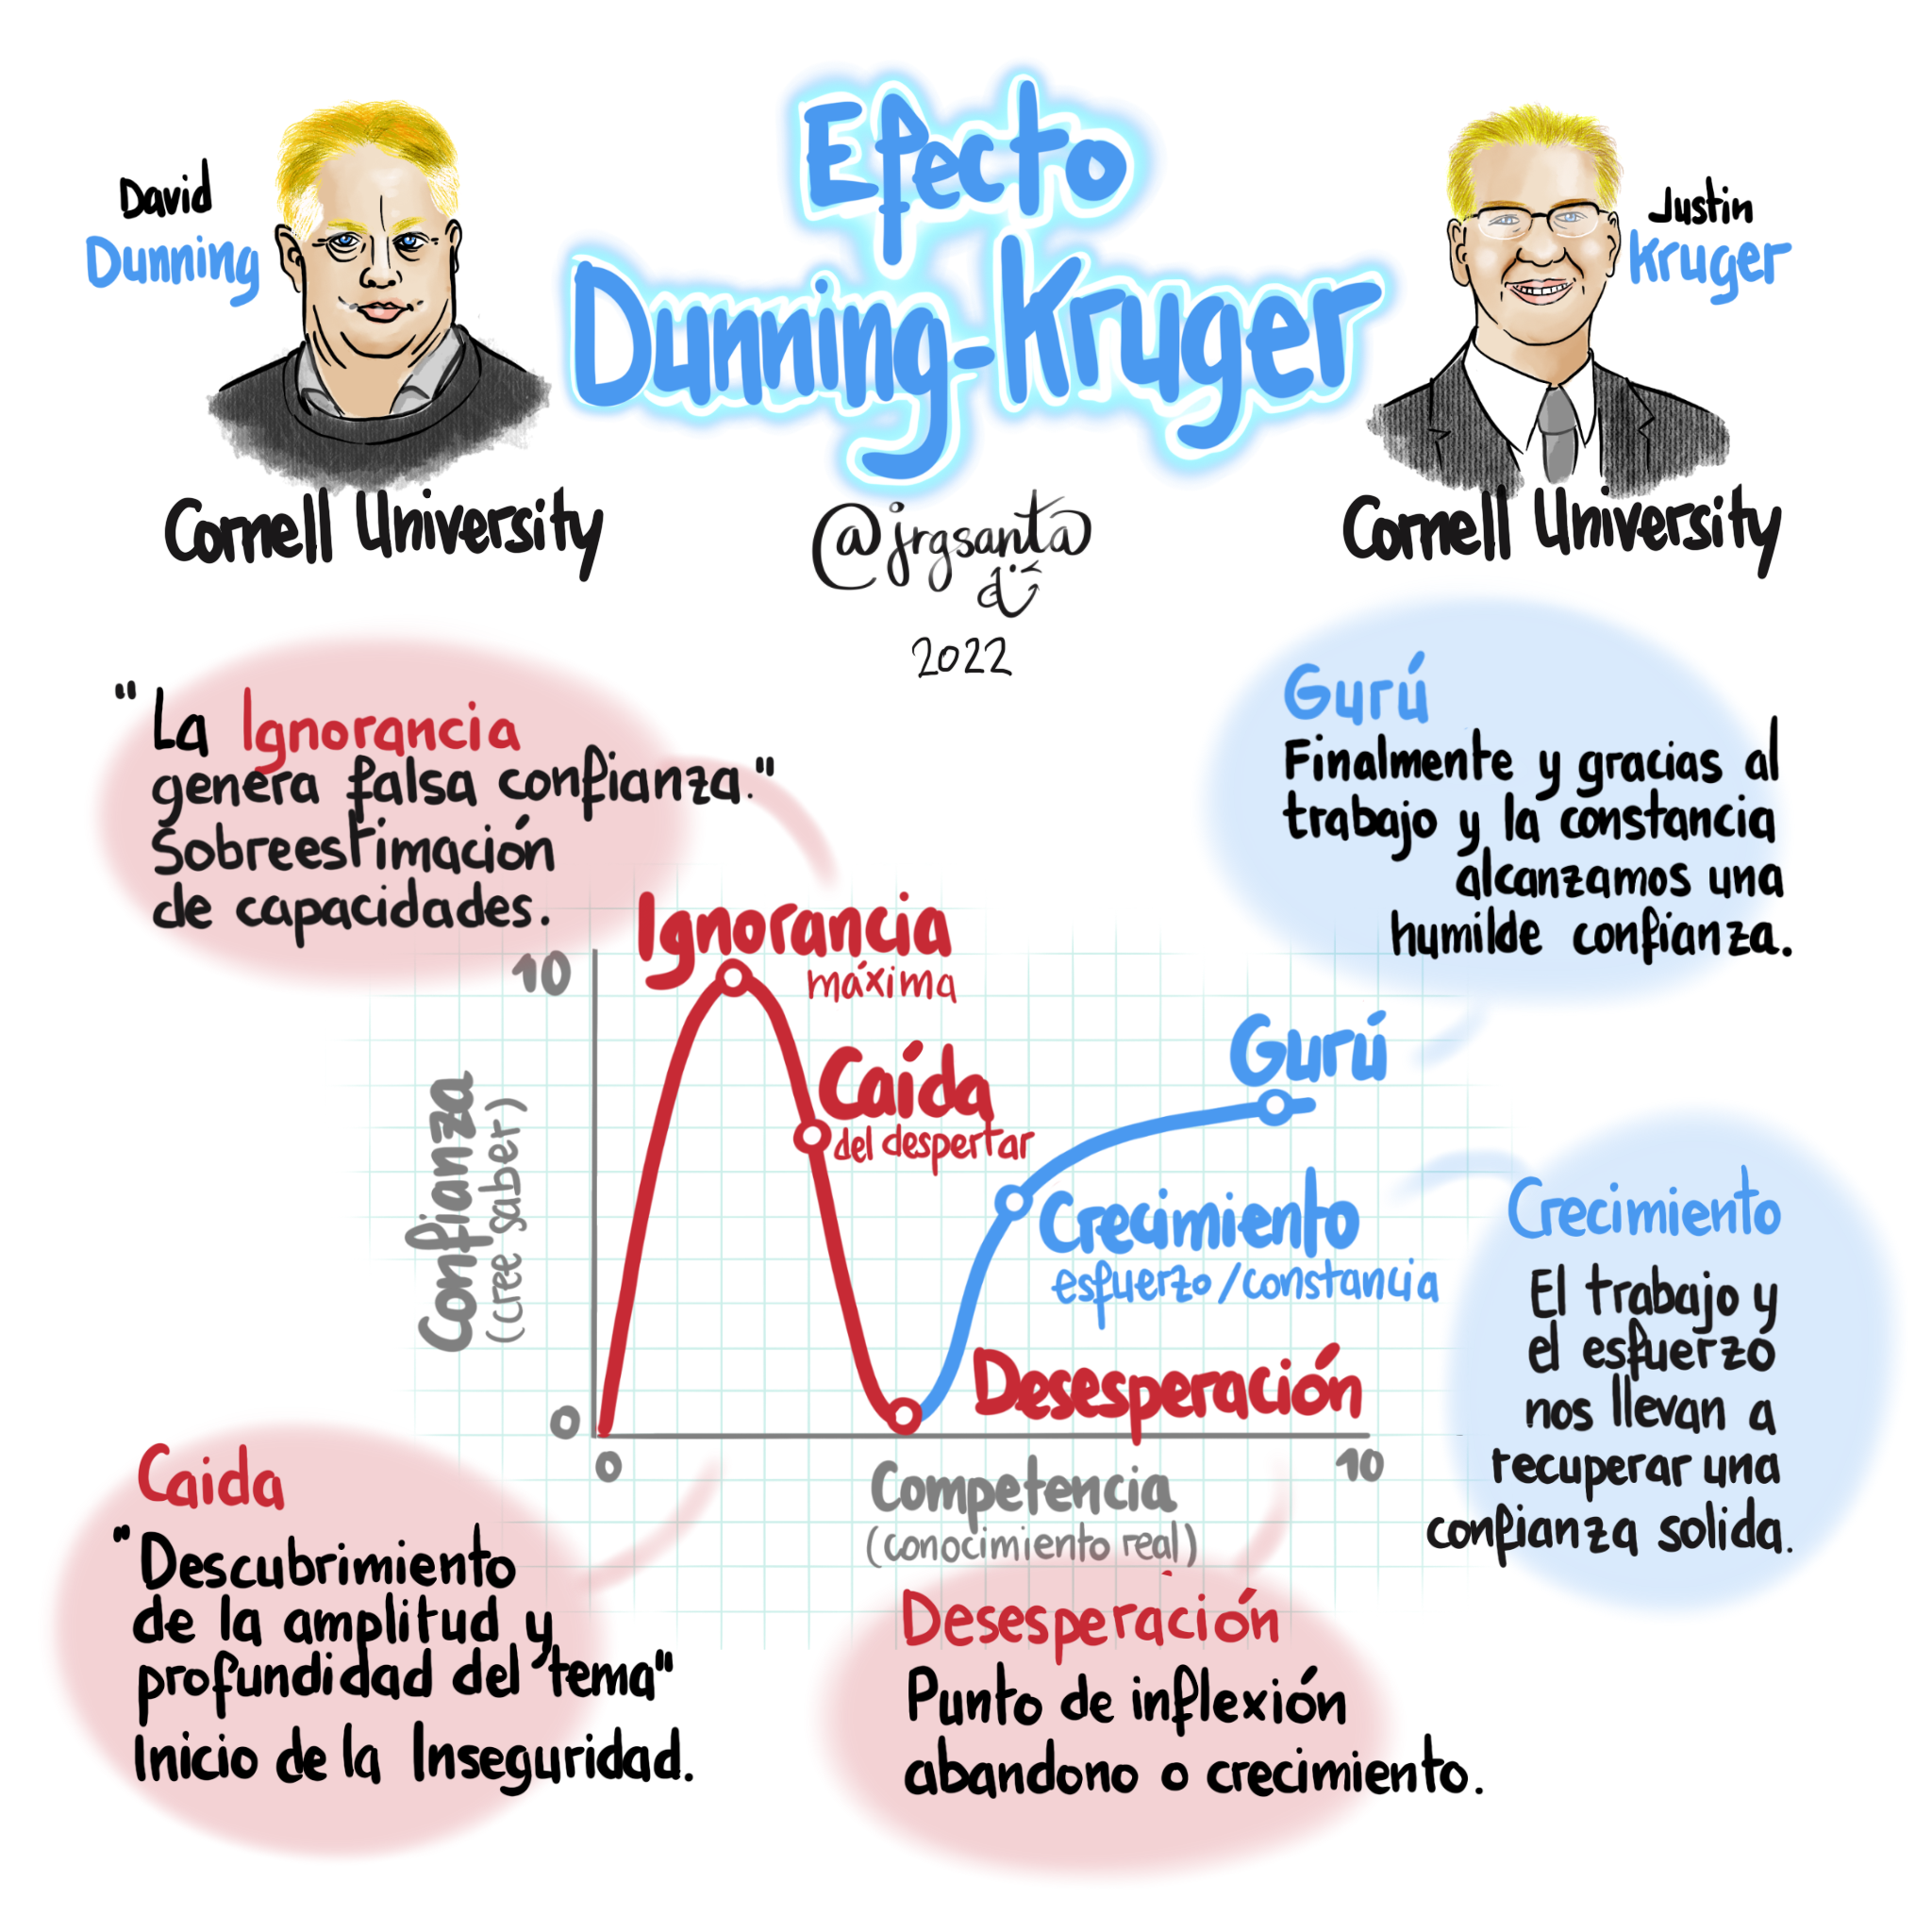 Efecto
Dunning-Kruger
David
Dunning
Cornell University
Justin
Kruger
Cornell University
@jrgsanta
2022
"La Ignorancia
genera falsa confianza."
Sobreestimación
de capacidades.
Gurú
Finalmente y gracias al
trabajo y la constancia
alcanzamos una
humilde confianza.
10
Ignorancia
máxima
Caída
del despertar
Gurú
Crecimiento
esfuerzo/constancia
Desesperación
Confianza
(cree saber)
0
0
10
Competencia
(conocimiento real)
Crecimiento
El trabajo y
el esfuerzo
nos llevan a
recuperar una
confianza solida.
Caida
"Descubrimiento
de la amplitud y
profundidad del tema"
Inicio de la Inseguridad.
Desesperación
Punto de inflexión
abandono o crecimiento.